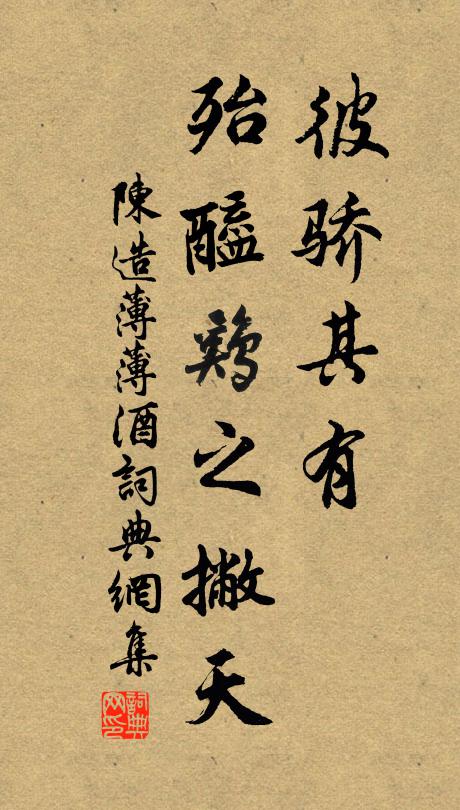 彼骄其有
殆醯鷄之撇天
陳造薄薄酒詞典網集
詞典网印